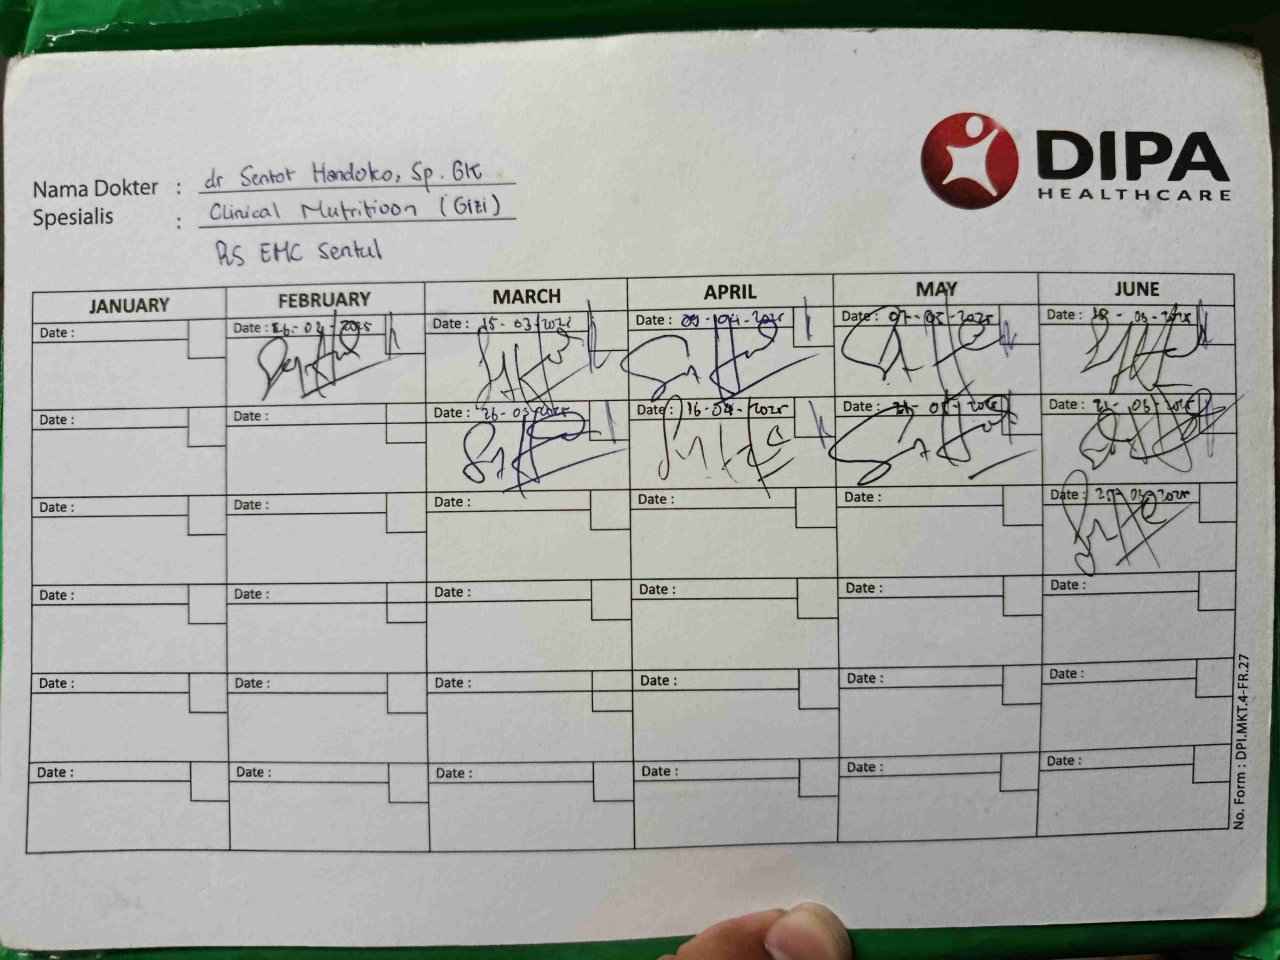 DIPA
HEALTHCARE
Nama Dokter : dr Sentot Handoko, Sp. GK
Spesialis : Clinical Nutritioon (Gizi)
RS EMC Sentul
JANUARY FEBRUARY MARCH APRIL MAY JUNE
Date : Date : 26-02-2025 Date : 15-03-2025 Date : 09-04-2025 Date : 07-05-2025 Date : -06-2025
Date : Date : Date : 26-03-2025 Date : 16-04-2025 Date : 21-05-2025 Date : 21-06-2025
Date : Date : Date : Date : Date : Date :
Date : Date : Date : Date : Date : Date :
Date : Date : Date : Date : Date : Date :
Date : Date : Date : Date : Date : Date :
No. Form : DPI.MKT.4-FR.27